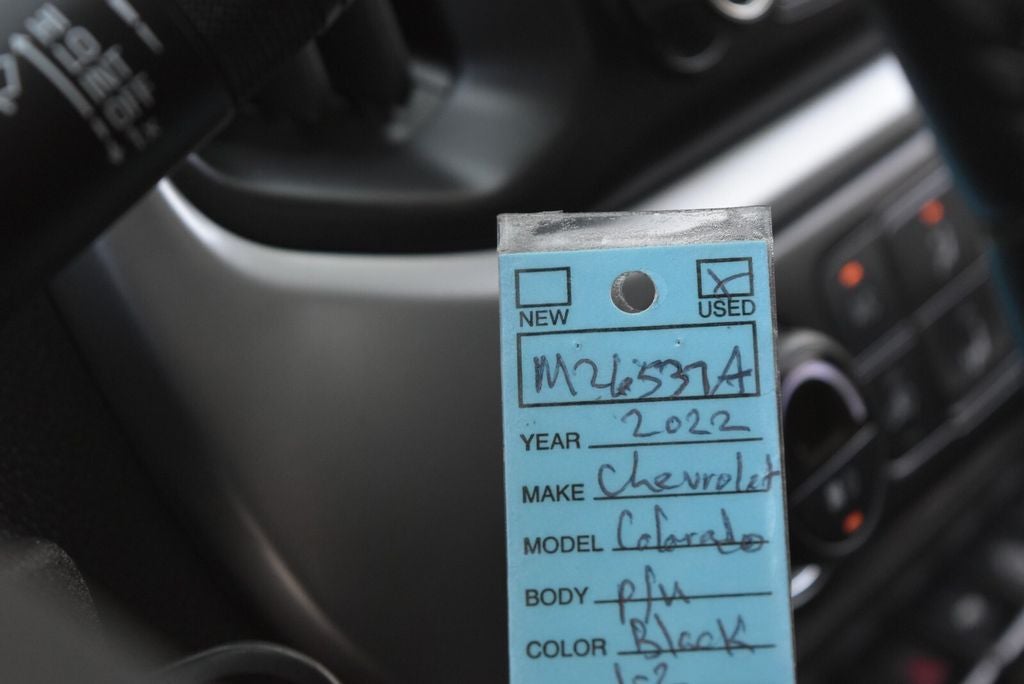 NEW USED
M26537A
YEAR 2022
MAKE Chevrolet
MODEL Colorado
BODY p/u
COLOR Black